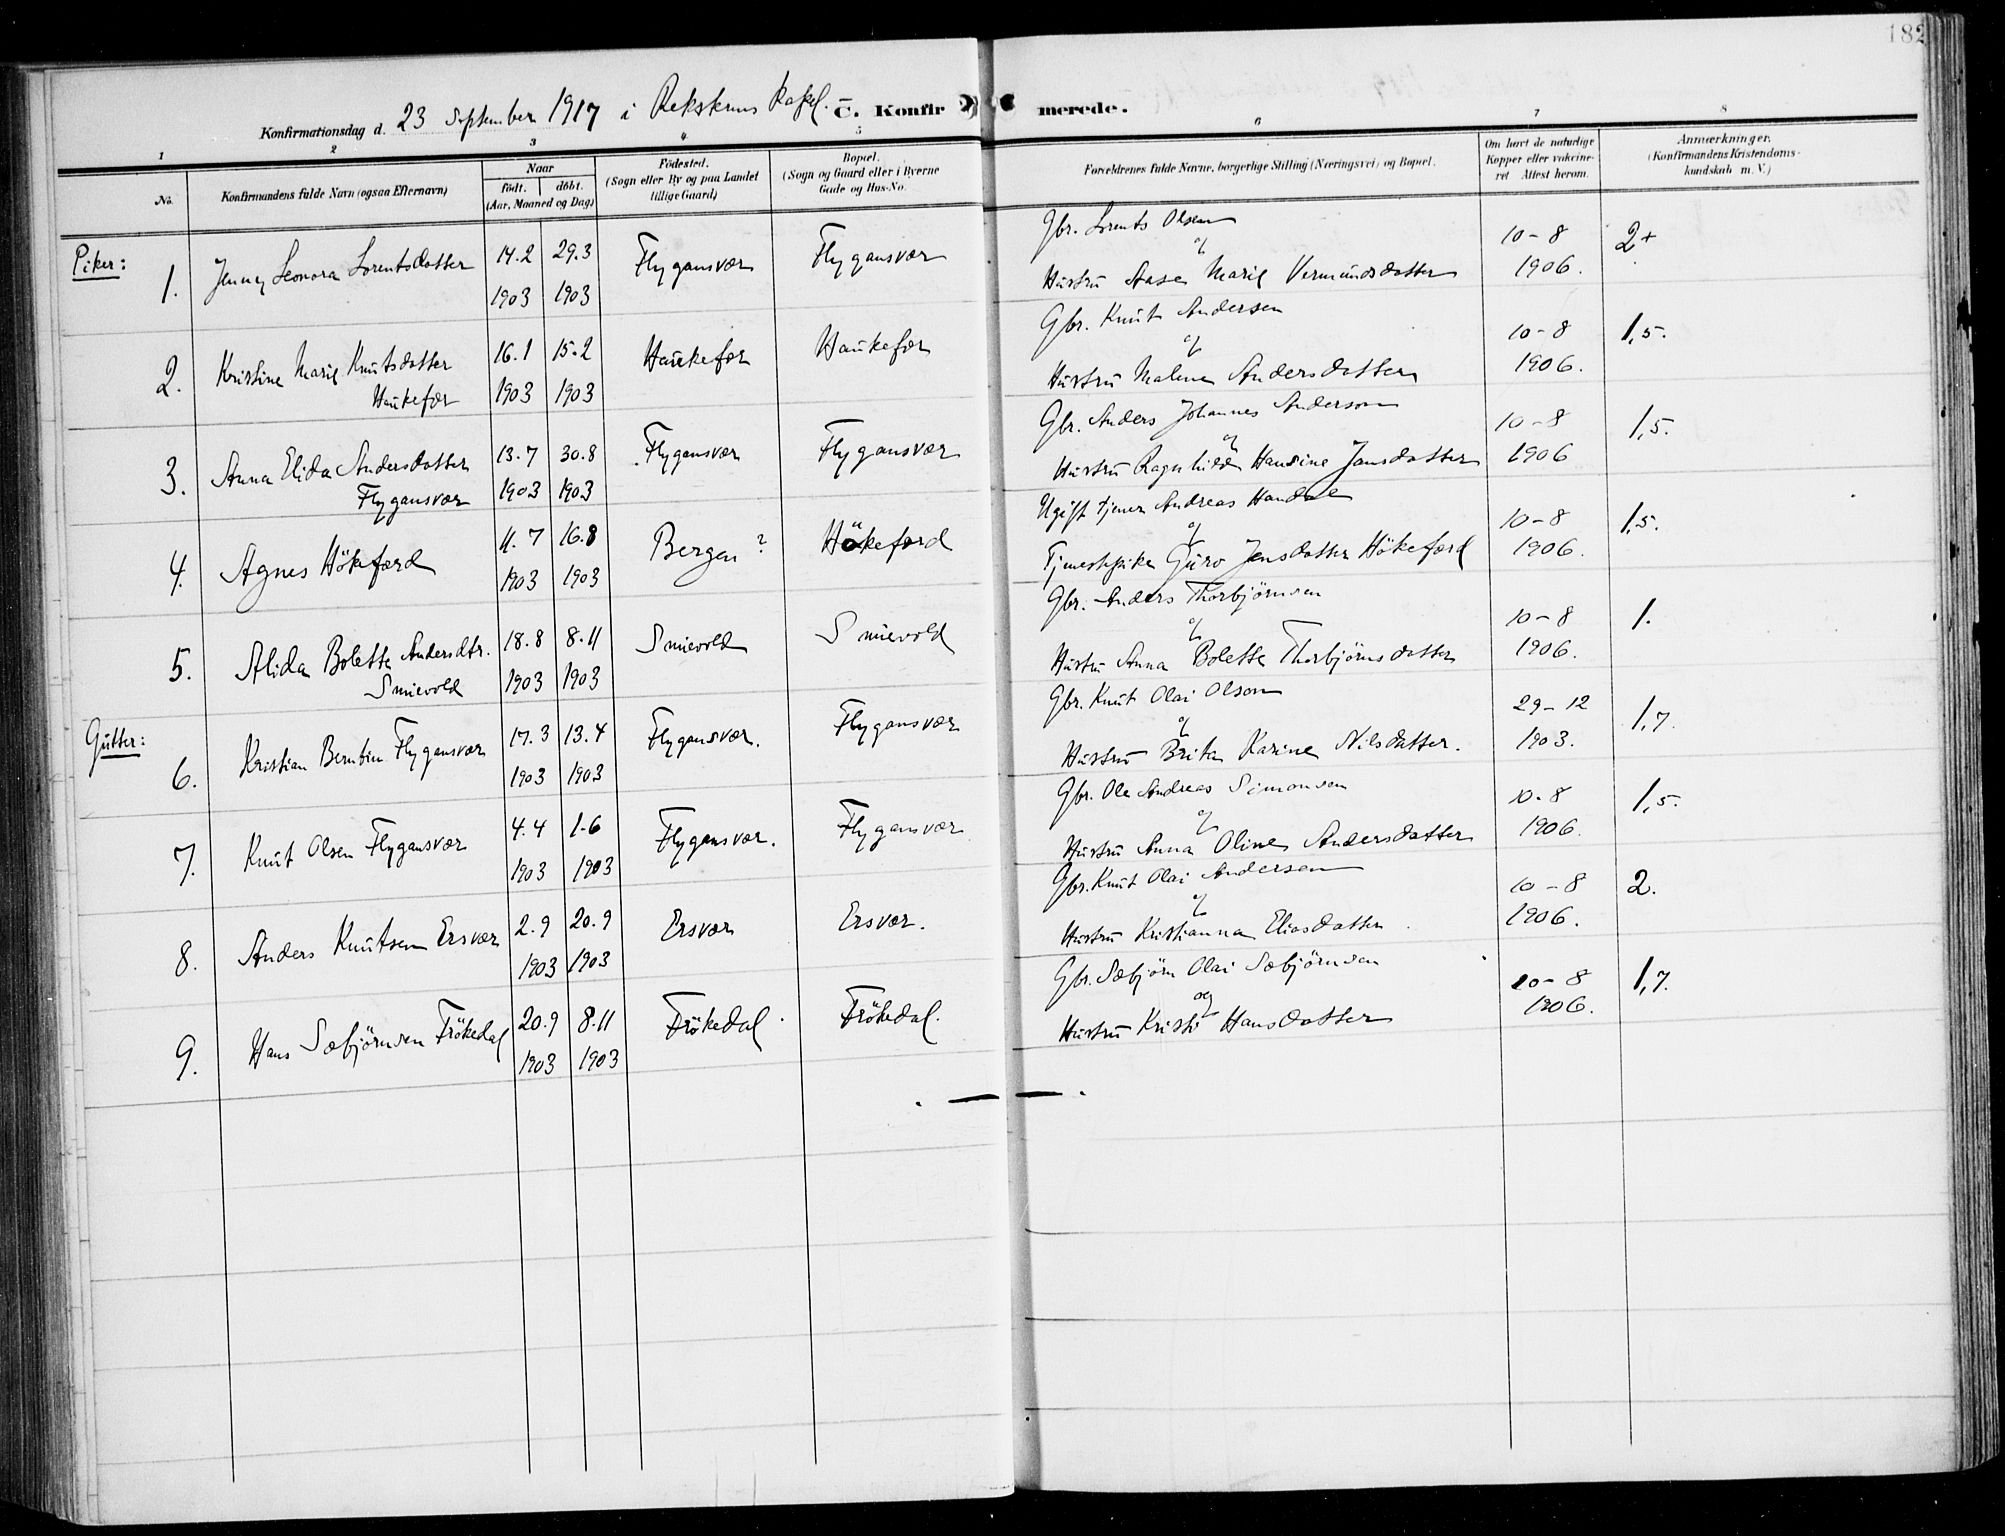 182
Konfirmationsdag d. 23 September 1917 i Rekstrens Kapel. C. Konfirmerede.
1 2 3 4 5 6 7 8
No. Konfirmandens fulde Navn (ogsaa Efternavn) Naar født. døbt. (Aar, Maaned og Dag) Fødested. (Sogn eller By og paa Landet tillige Gaard) Bopæl. (Sogn og Gaard eller i Byerne Gade og Hus-No. Forældrenes fulde Navne, borgerlige Stilling (Næringsvei) og Bopæl. Om havt de naturlige Kopper eller vakcineret Attest herom. Anmærkninger. (Konfirmandens Kristendomskundskab m. V.)
Piker:
1. Jenny Leonora Lorentsdatter 14.2 1903 29.3 1903 Flygansvær Flygansvær Gbr. Lorents Olsen og Hustru Aase Marie Vermundsdatter 10-8 1906. 2+
2. Kristine Marie Knutsdatter Haukefær 16.1 1903 15.2 1903 Haukefær Haukefær Gbr. Knut Andersen og Hustru Malene Andersdatter 10-8 1906. 1,5.
3. Anna Elida Andersdatter Flygansvær 13.7 1903 30.8 1903 Flygansvær Flygansvær Gbr. Anders Johannes Anderson og Hustru Ragnhild Hansine Jansdatter 10-8 1906 1,5.
4. Agnes Hökefærd 11.7 1903 16.8 1903 Bergen? Hökefærd Ugift tjener Andreas og Tjenestepike Guro Jensdatter Hökefærd 10-8 1906. 1,5.
5. Alida Bolette Andersdtr. Smievold 18.8 1903 8.11 1903 Smievold Smievold Gbr. Anders Thorbjørnsen og Hustru Anna Bolette Thorbjørnsdatter 10-8 1906. 1.
Gutter:
6. Kristian Berntin Flygansvær 17.3 1903 13.4 1903 Flygansvær. Flygansvær Gbr. Knut Olai Olson og Hustru Brita Karine Nilsdatter. 29-12 1903. 1,7.
7. Knut Olsen Flygansvær 4.4 1903 1.6 1903 Flygansvær. Flygansvær Gbr. Ole Andreas Simonsen og Hustru Anna Oline Andersdatter 10-8 1906. 1,5.
8. Anders Knutsen Ersvær 2.9 1903 20.9 1903 Ersvær Ersvær. Gbr. Knut Olai Andersen og Hustru Kristianna Eliasdatter 10-8 1906. 2.
9. Hans Sæbjörnsen Frökedal 20.9 1903 8.11 1903 Frökedal Frökedal. Gbr. Sæbjörn Olai Sæbjörnsen og Hustru Kristi Hansdatter 10-8 1906. 1,7.